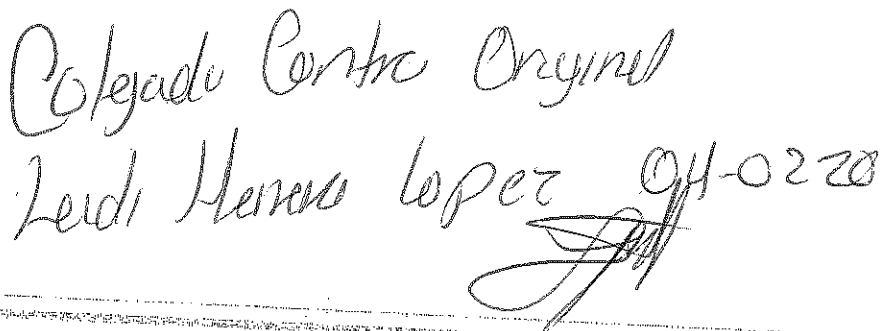 Cotejado Contra Original
Leidi Herrera Lopez 04-0220